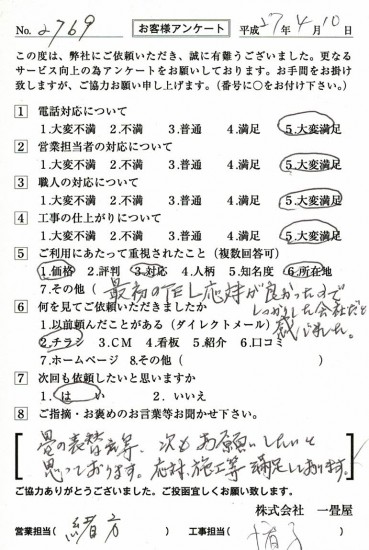 No. 2769 お客様アンケート 平成27年4月10日
この度は、弊社にご依頼いただき、誠に有難うございました。更なる
サービス向上の為アンケートをお願いしております。お手間をお掛け
致しますが、ご協力お願い申し上げます。（番号に○をお付け下さい。）
1 電話対応について
1.大変不満 2.不満 3.普通 4.満足 5.大変満足
2 営業担当者の対応について
1.大変不満 2.不満 3.普通 4.満足 5.大変満足
3 職人の対応について
1.大変不満 2.不満 3.普通 4.満足 5.大変満足
4 工事の仕上がりについて
1.大変不満 2.不満 3.普通 4.満足 5.大変満足
5 ご利用にあたって重視されたこと（複数回答可）
1.価格 2.評判 3.対応 4.人柄 5.知名度 6.所在地
7.その他（最初のTEL応対が良かったので
しっかりした会社だと
感じました。
6 何を見てご依頼いただきましたか
1.以前頼んだことがある（ダイレクトメール）
2.チラシ 3.CM 4.看板 5.紹介 6.口コミ
7.ホームページ 8.その他（ ）
7 次回も依頼したいと思いますか
1.はい 2.いいえ
8 ご指摘・お褒めのお言葉等お聞かせ下さい。
畳の表替え等、次もお願いしたいと
思っております。応対、施工等満足しております。
ご協力ありがとうございました。ご投函宜しくお願い致します。
株式会社 一畳屋
営業担当（緒方 ） 工事担当（ ）